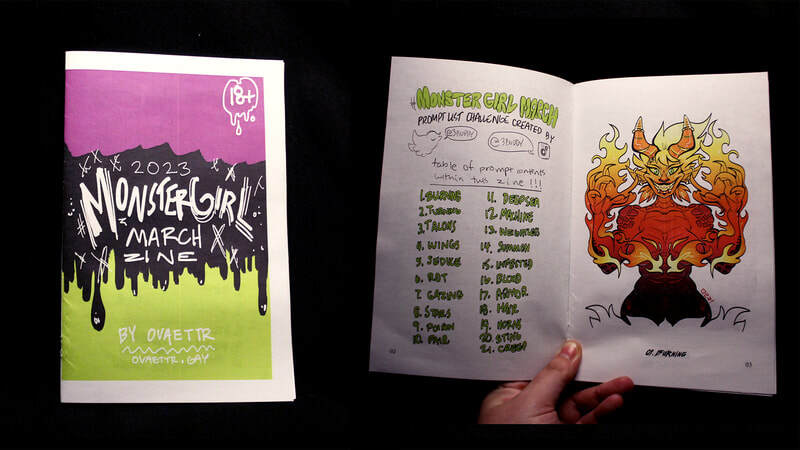 18+
2023
MONSTERGIRL
MARCH
ZINE
BY OVAETTR
OVAETTR.GAY
#MONSTER GIRL MARCH
PROMPT LIST CHALLENGE CREATED BY
table of prompt contents
within this zine !!!
1. BURNING
3. TALONS
4. WINGS
5. SEDUCE
6. ROT
7. GAZING
8. STARS
9. POISON
10. FAIR
11. DEEPSEA
12. MACHINE
14. SUMMON
15. INFESTED
16. BLOOD
17. ARMOR
18. HAIR
19. HORNS
20. STING
02
01. BURNING
03